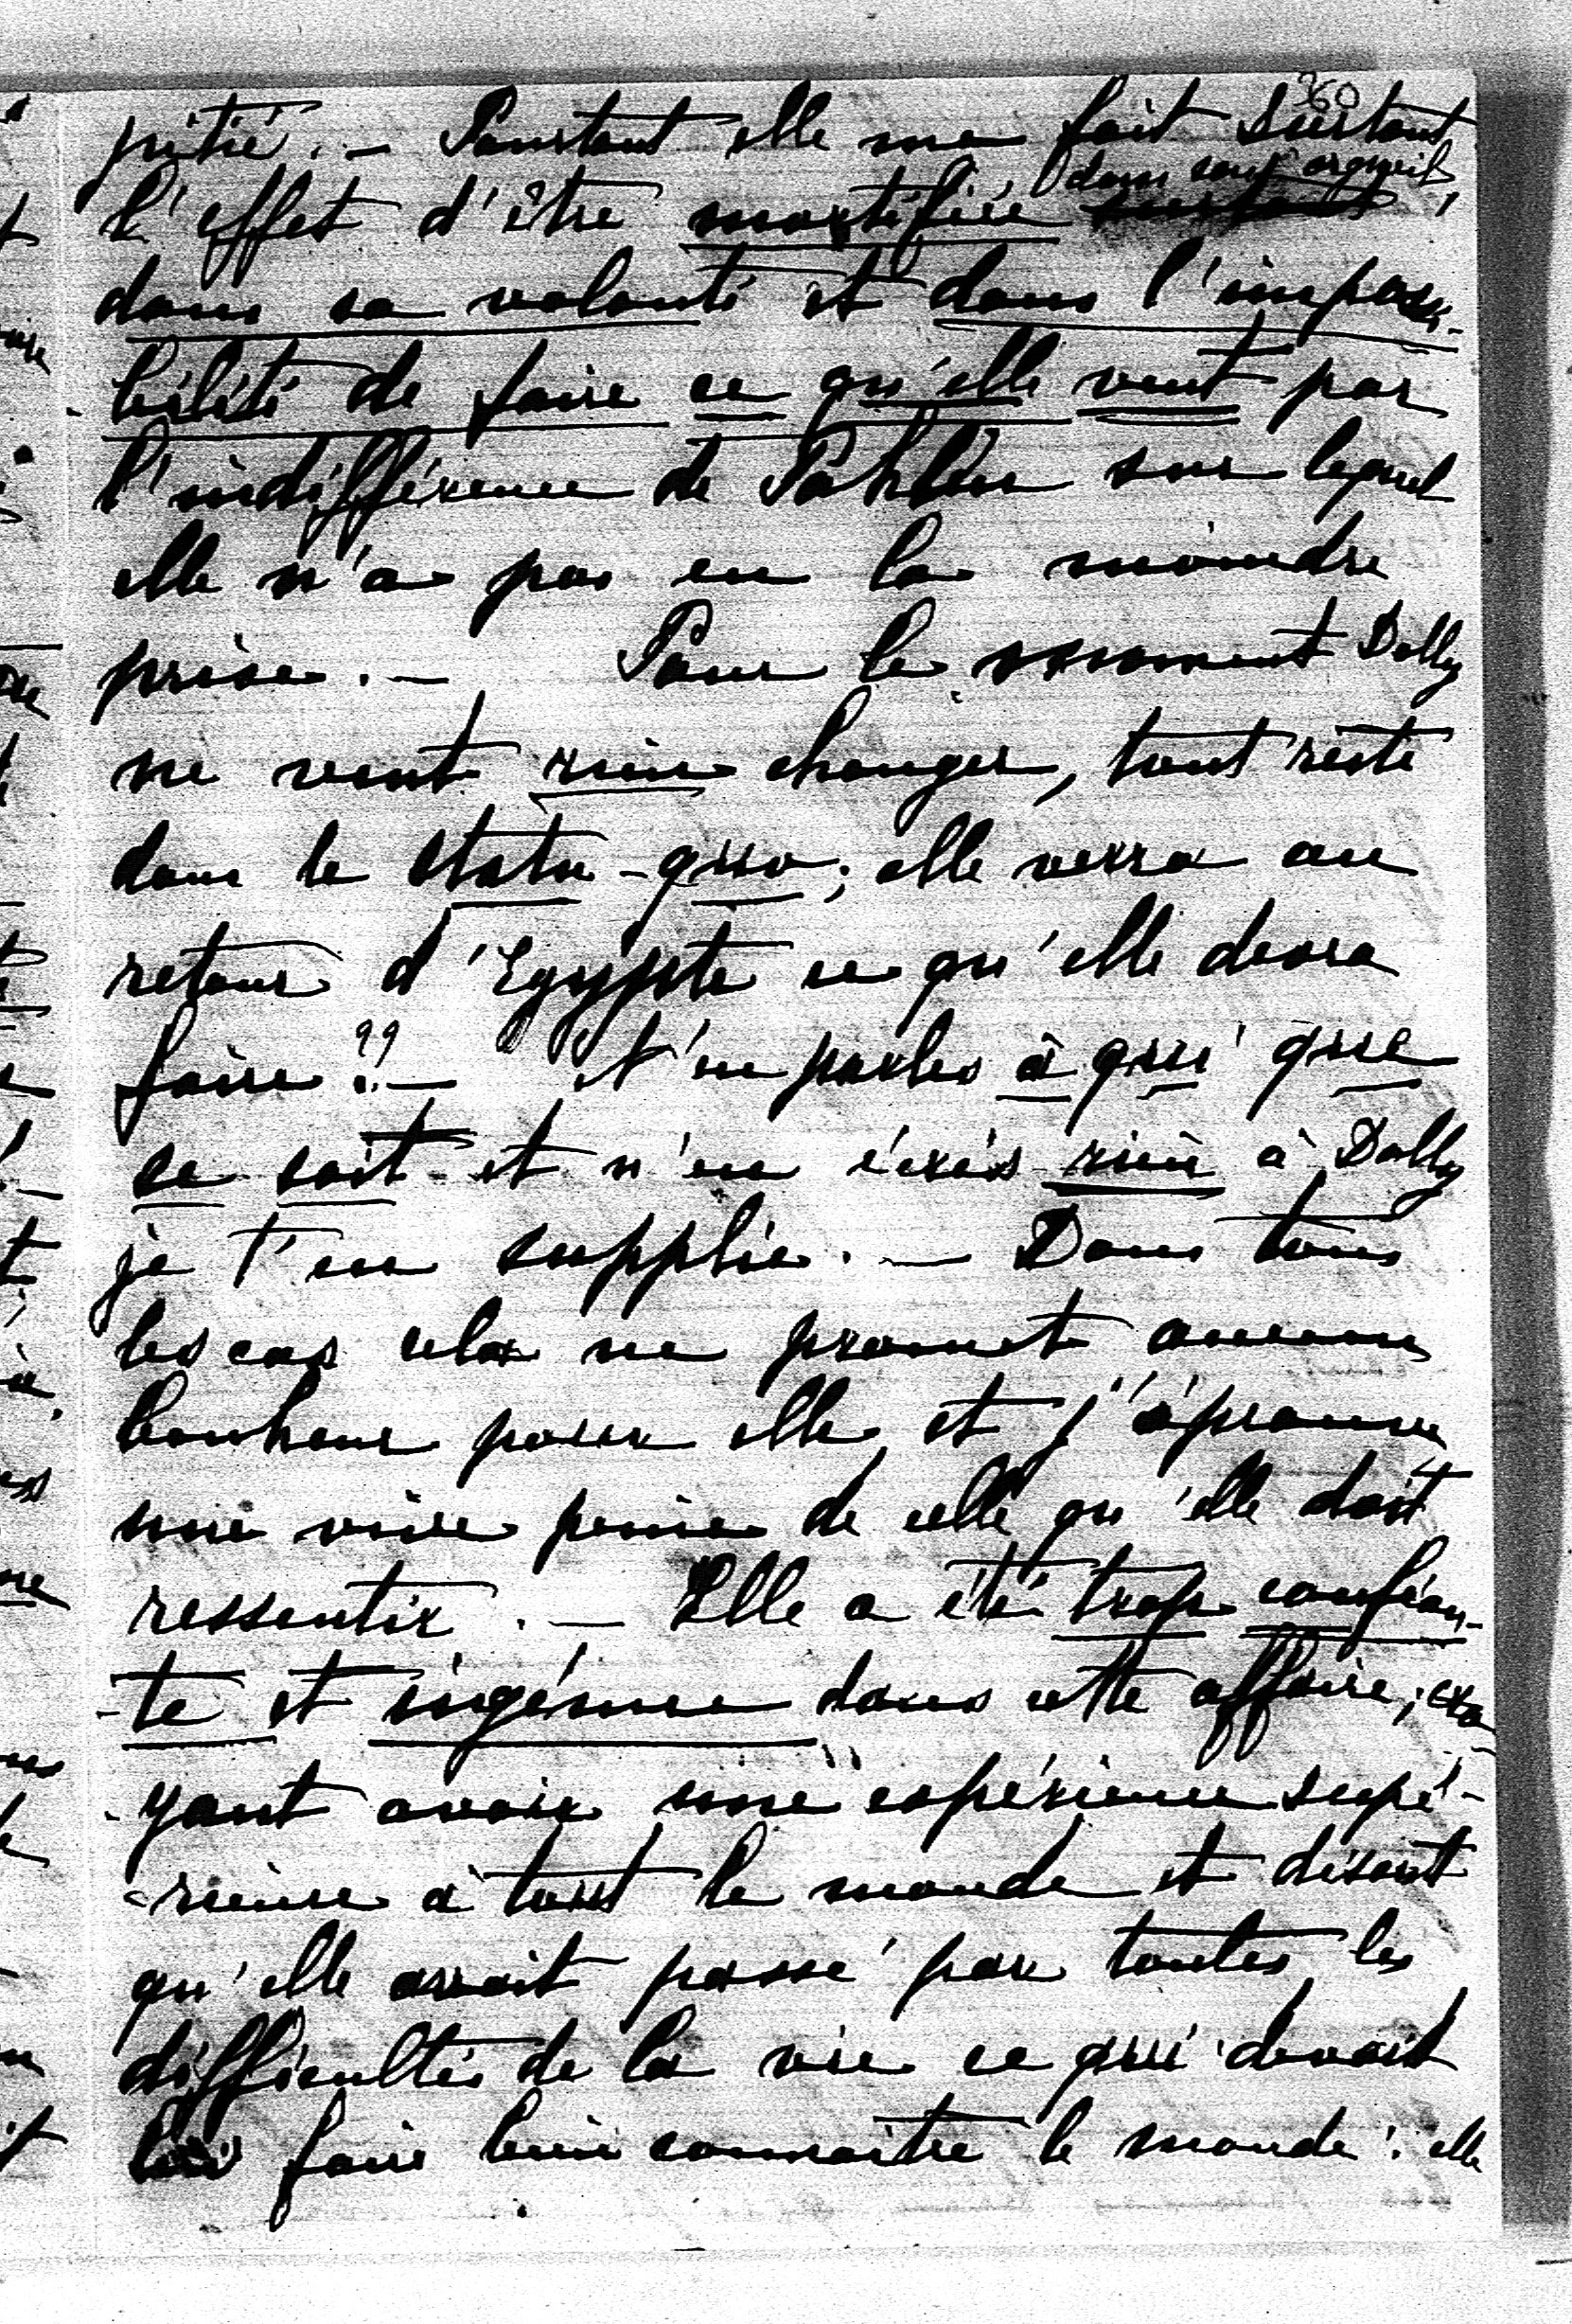 360
pitié. — Pourtant elle me fait surtout
l'effet d'être mortifiée dans son orgueil,
dans sa volonté et dans l'impossi-
bilité de faire ce qu'elle veut par
l'indifférence de Pahlen sur lequel
elle n'a pas eu la moindre
prise. — Pour le moment Dolly
ne veut rien changer, tout reste
dans le statu-quo; elle verra au
retour d'Egypte ce qu'elle devra
faire?? — N'en parles à qui que
se soit et n'en écris rien à Dolly
je t'en supplie. — Dans tous
les cas cela ne promet aucun
bonheur pour elle et j'éprouve
une vive peine de celle qu'elle doit
ressentir. — Elle a été trop confian-
-te et ingénue dans cette affaire; cro
-yant avoir une expérience supé-
-rieure à tout le monde et disant
qu'elle avait passé par toutes les
difficultés de la vie ce qui devait
lui faire bien connaitre le monde: elle